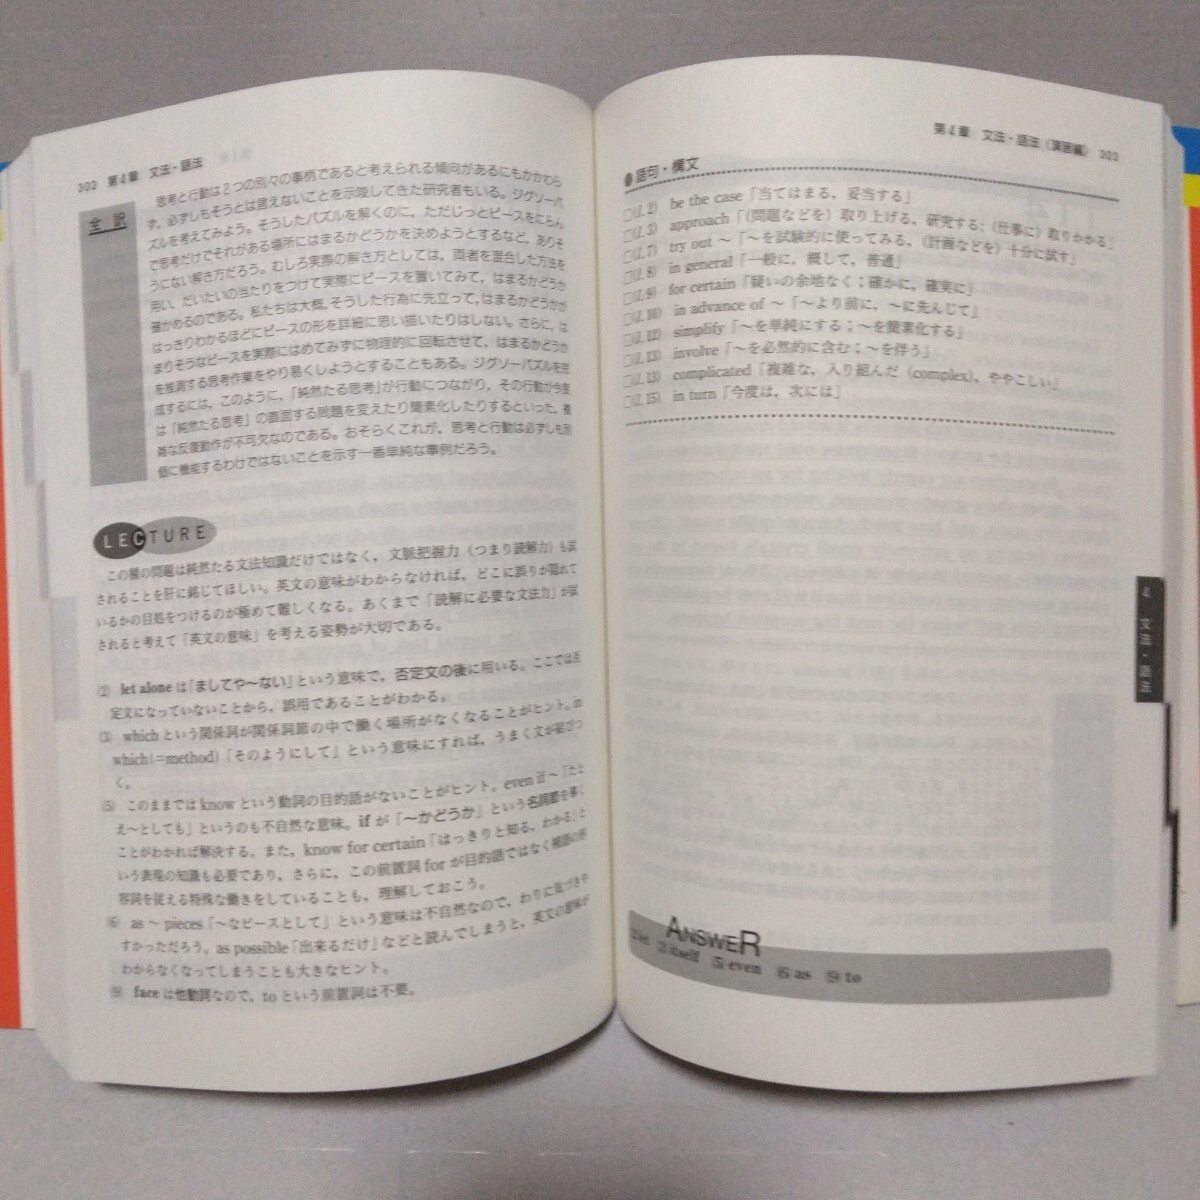 302 第4章 文法・語法
全訳
思考と行動は2つの別々の事柄であると考えられる傾向があるにもかかわら
ず，必ずしもそうとは言えないことを示唆してきた研究者もいる。ジグソーパ
ズルを考えてみよう。そうしたパズルを解くのに，ただじっとピースをにらん
で思考だけでそれがある場所にはまるかどうかを決めようとするなど，ありそ
うにない解き方だろう。むしろ実際の解き方としては，両者を混合した方法を
用い，だいたいの当たりをつけて実際にピースを置いてみて，はまるかどうか
確かめるのである。私たちは大概，そうした行為に先立って，はまるかどうかが
はっきりわかるほどにピースの形を詳細に思い描いたりはしない。さらに，は
まりそうなピースを実際にはめてみずに物理的に回転させて，はまるかどうか
を推測する思考作業をやり易くしようとすることもある。ジグソーパズルを完
成するには，このように，「純然たる思考」が行動につながり，その行動が今度
は「純然たる思考」の直面する問題を変えたり簡素化したりするといった，複
雑な反復動作が不可欠なのである。おそらくこれが，思考と行動は必ずしも別
個に機能するわけではないことを示す一番単純な事例だろう。
LECTURE
この種の問題は純然たる文法知識だけではなく，文脈把握力（つまり読解力）も試
されることを肝に銘じてほしい。英文の意味がわからなければ，どこに誤りが隠れて
いるかの目処をつけるのが極めて難しくなる。あくまで「読解に必要な文法力」が試
されると考えて「英文の意味」を考える姿勢が大切である。
(2) let alone は「ましてや～ない」という意味で，否定文の後に用いる。ここでは否
定文になっていないことから，誤用であることがわかる。
(3) which という関係詞が関係詞節の中で働く場所がなくなることがヒント。in
which(=method)「そのようにして」という意味にすれば，うまく文が結びつ
く。
(5) このままでは know という動詞の目的語がないことがヒント。even if ～「たと
え～としても」というのも不自然な意味。if が「～かどうか」という名詞節を導く
ことがわかれば解決する。また，know for certain「はっきりと知る，わかる」と
いう表現の知識も必要であり，さらに，この前置詞 for が目的語ではなく補語の形
容詞を従える特殊な働きをしていることも，理解しておこう。
(6) as ～ pieces「～なピースとして」という意味は不自然なので，わりに気づきや
すかっただろう。as possible「出来るだけ」などと読んでしまうと，英文の意味が
わからなくなってしまうことも大きなヒント。
(9) face は他動詞なので，to という前置詞は不要。
第4章 文法・語法（演習編） 303
●語句・構文
□(l. 2) be the case「当てはまる，妥当する」
□(l. 3) approach「（問題などを）取り上げる，研究する；（仕事に）取りかかる」
□(l. 7) try out ～「～を試験的に使ってみる，（計画などを）十分に試す」
□(l. 8) in general「一般に，概して，普通」
□(l. 9) for certain「疑いの余地なく；確かに，確実に」
□(l. 10) in advance of ～「～より前に，～に先んじて」
□(l. 12) simplify「～を単純にする；～を簡素化する」
□(l. 13) involve「～を必然的に含む；～を伴う」
□(l. 13) complicated「複雑な，入り組んだ（complex），ややこしい」
□(l. 15) in turn「今度は，次には」
4 文法・語法
ANSWER
(2) let (3) itself (5) even (6) as (9) to